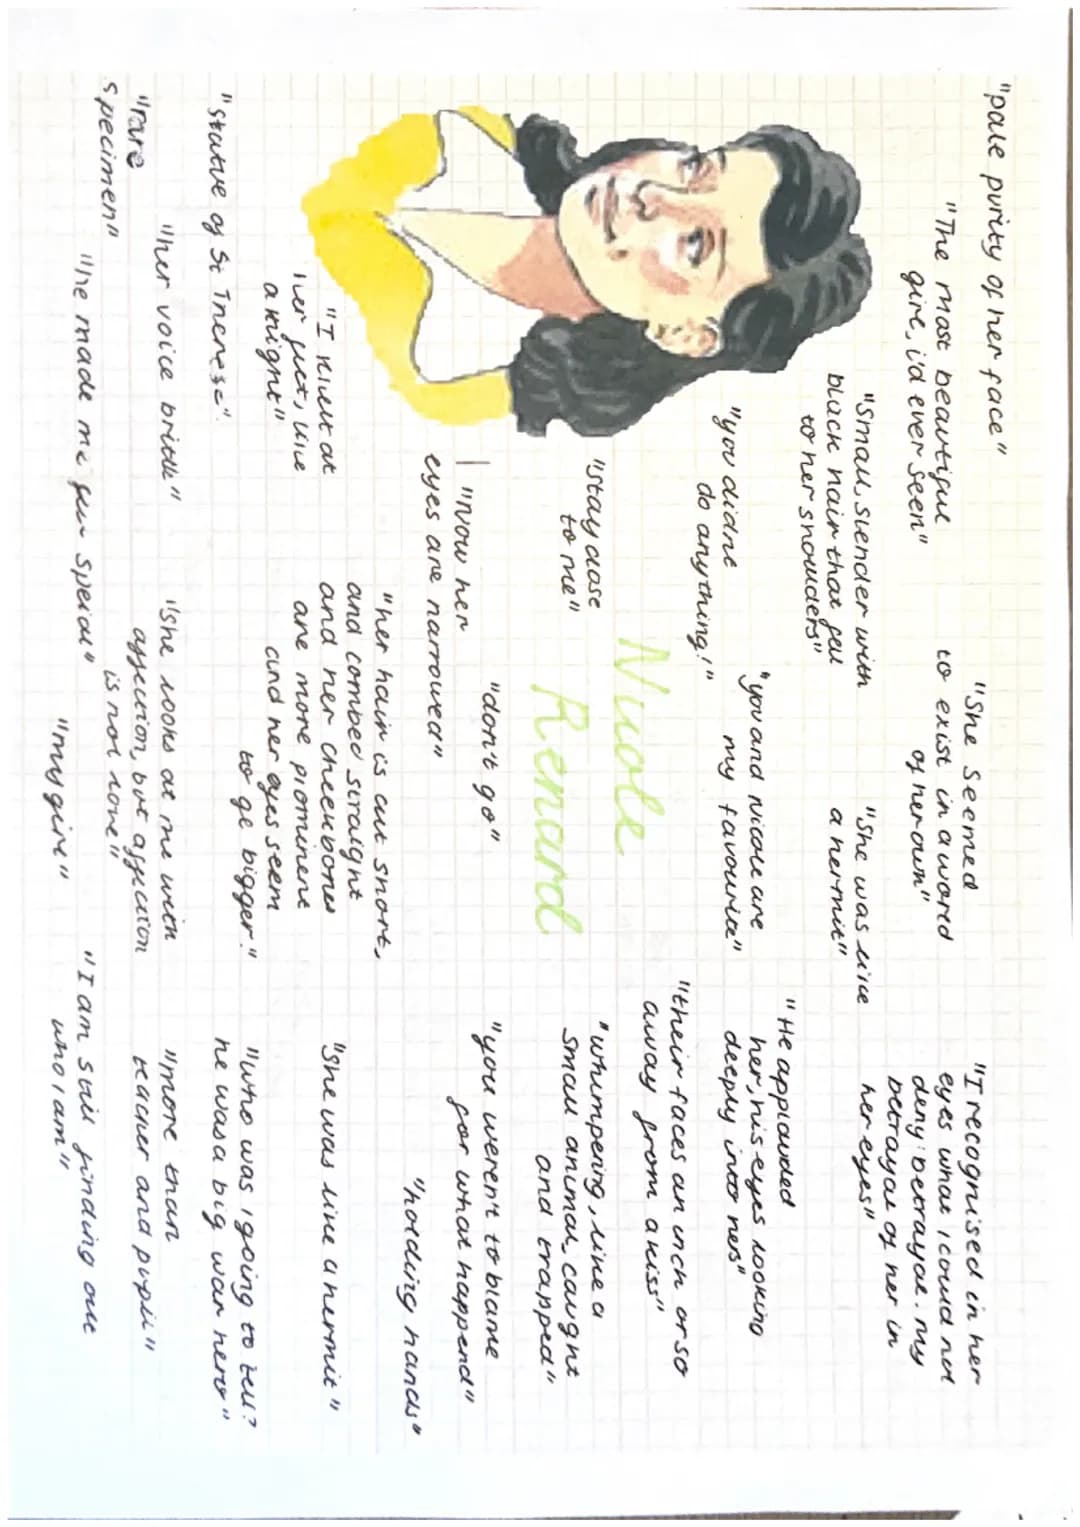 "pale purity of her face"
"The most beautiful
girl, i'd ever seen"
"She seemed
to exist in a world
of her own"
"I recognised in her
eyes what I could not
deny: betrayal. my
betrayal of her in
her eyes"
"Small, slender with
black hair that fell
to her shoulders"
"she was like
a hermit"
"He applauded
her, his eyes looking
deeply into hers"
"you didnt
do anything!"
"you and nicole are
my favourite"
"their faces an inch or so
away from a kiss"
"Stay close
to me"
Nicole
Renard
"whimpering, like a
small animal, caught
and trapped"
"don't go"
"you weren't to blame
for what happend"
"Now her
eyes are narrowed"
"her hair is cut short,
and combed straight
and her cheekbones
are more prominent
and her eyes seem
to ge bigger."
"holding hands"
"I knelt at
her feet, like
a knight"
"She was like a hermit"
"statue of St Therese".
"who was I going to tell?
he was a big war hero"
"her voice brittle"
"rare
specimen"
"She looks at me with
affection, but affection
is not love"
"more than
teacher and pupil"
"He made me feel special"
"my girl"
"I am still finding out
who I am"